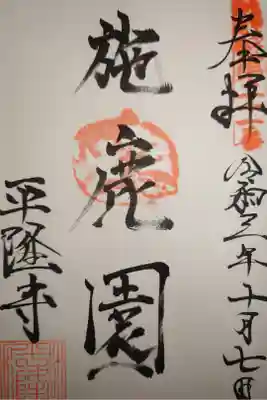 奉拝
令和三年十月七日
施鹿園
平隆寺